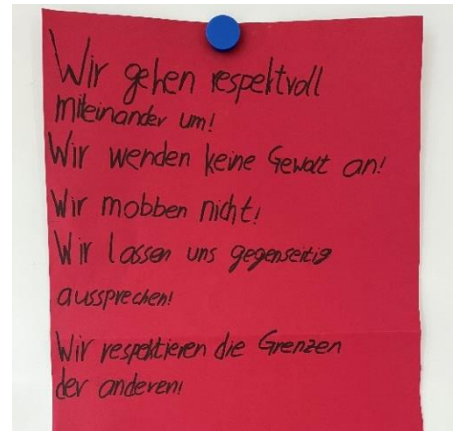 Wir gehen respektvoll
miteinander um!
Wir wenden keine Gewalt an!
Wir mobben nicht!
Wir lassen uns gegenseitig
aussprechen!
Wir respektieren die Grenzen
der anderen!